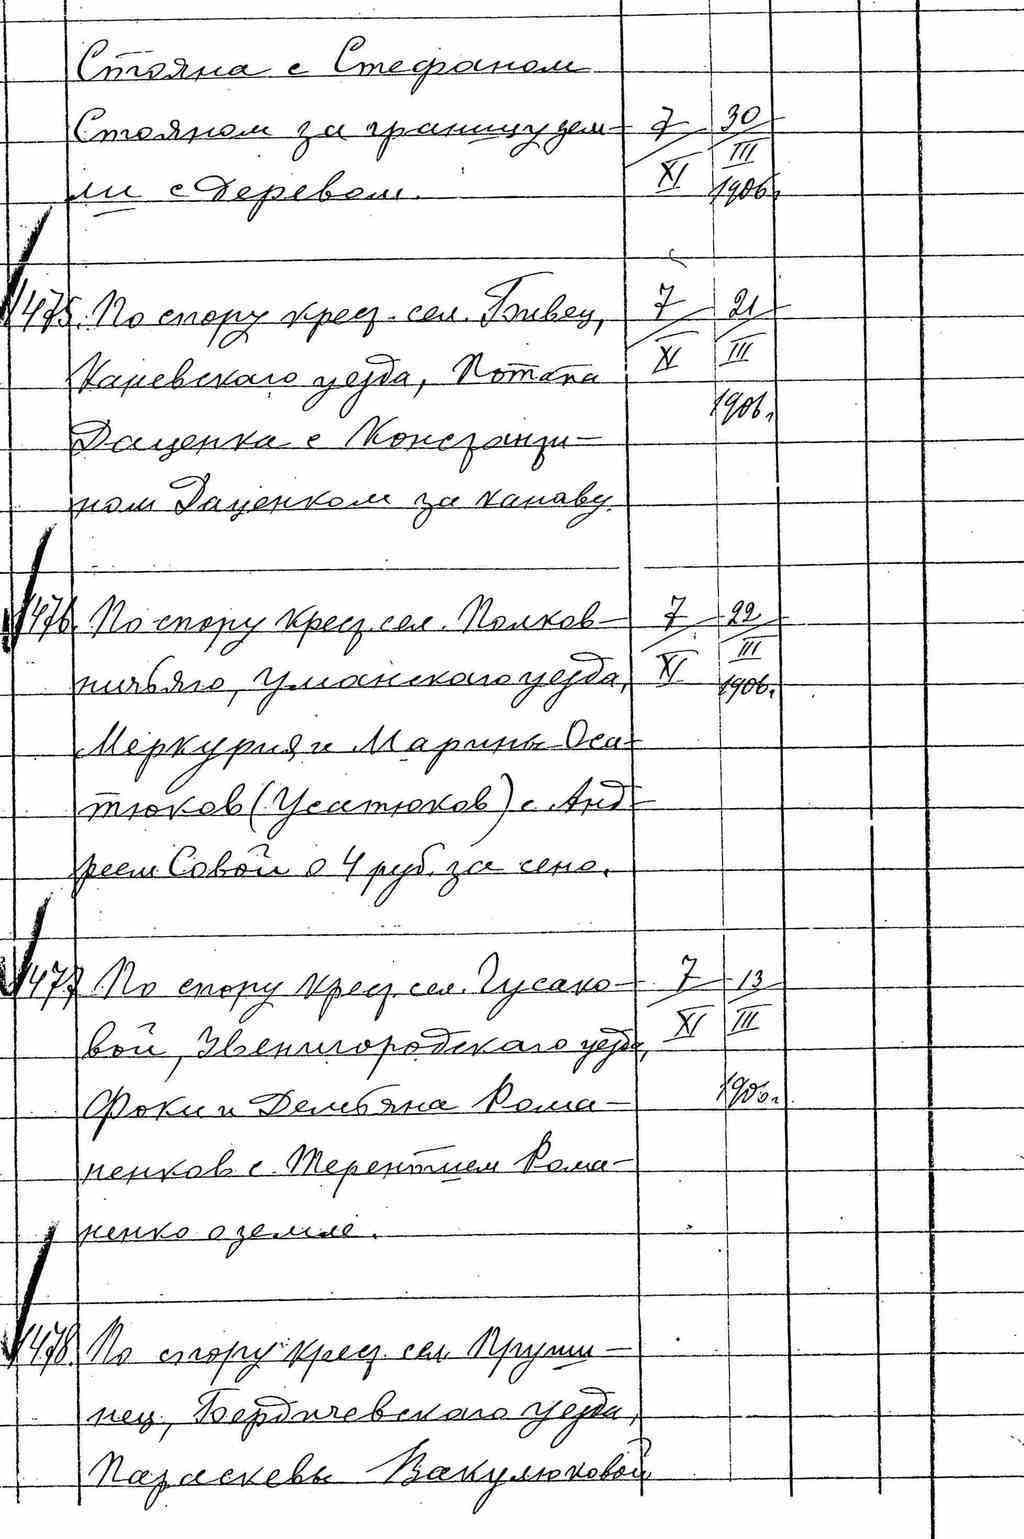 Стояна с Стефаном
Стояном за границу зем-
ли с деревом.
7/XI 30/III 1906г.
1475. По спору крест. сел. Бивец,
Каневскаго уезда, Потапа
Даценка с Константи-
ном Даценком за канаву.
7/XI 21/III 1906г.
1476. По спору крест. сел. Полков-
ничьяго, Уманскаго уезда,
Меркурия и Марины Оса-
тюков (Усатюков) с Анд-
реем Совой о 4 руб. за сено.
7/XI 22/III 1906г.
1477. По спору крест. сел. Гусако-
вой, Звенигородскаго уезда,
Фоки и Демьяна Рома-
ненков с Терентием Рома-
ненко о земле.
7/XI 13/III 1906г.
1478. По спору крест. сел. Пруши-
нец, Бердичевскаго уезда,
Параскевы Вакулюковой